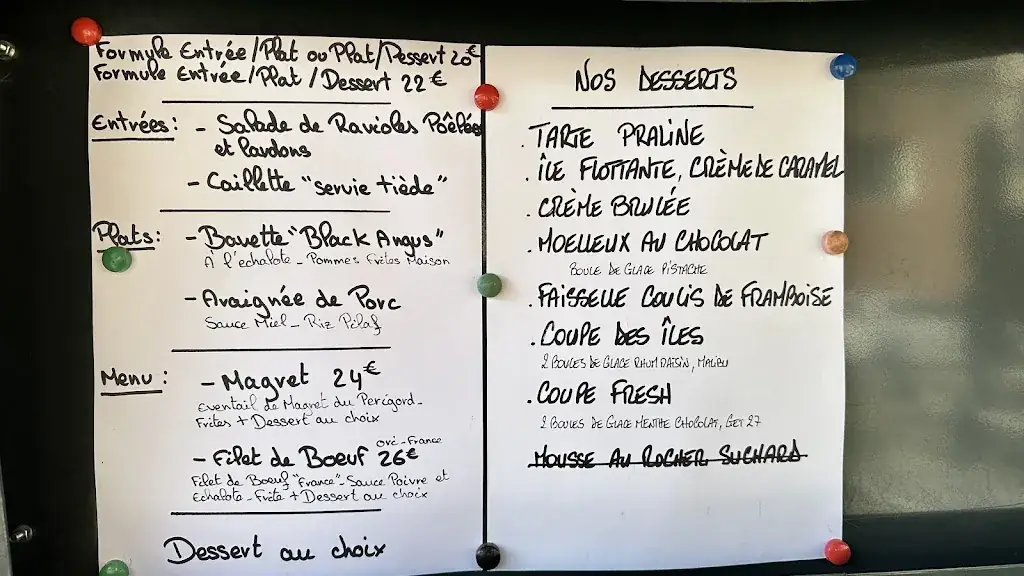 Formule Entrée/Plat ou Plat/Dessert 20€
Formule Entrée/Plat/Dessert 22€
Entrées: - Salade de Ravioles Poêlées
et lardons
- Caillette "servie tiède"
Plats: - Bavette "Black Angus"
À l'echalote - Pommes Frîtes Maison
- Araignée de Porc
Sauce Miel - Riz Pilaf
Menu: - Magret 24€
Eventail de Magret du Perigord -
Frîtes + Dessert au choix
- Filet de Boeuf 26€
Filet de Boeuf "France" - Sauce Poivre et
Echalote - Frîte + Dessert au choix
Dessert au choix
NOS DESSERTS
. TARTE PRALINE
. ÎLE FLOTTANTE, CRÈME DE CARAMEL
. CRÈME BRULÉE
. MOELLEUX AU CHOCOLAT
BOULE DE GLACE PISTACHE
. FAISSELLE COULIS DE FRAMBOISE
. COUPE DES ÎLES
2 BOULES DE GLACE RHUM RAISIN, MALIBU
. COUPE FRESH
2 BOULES DE GLACE MENTHE CHOCOLAT, GET 27
MOUSSE AU ROCHER SUCHARD